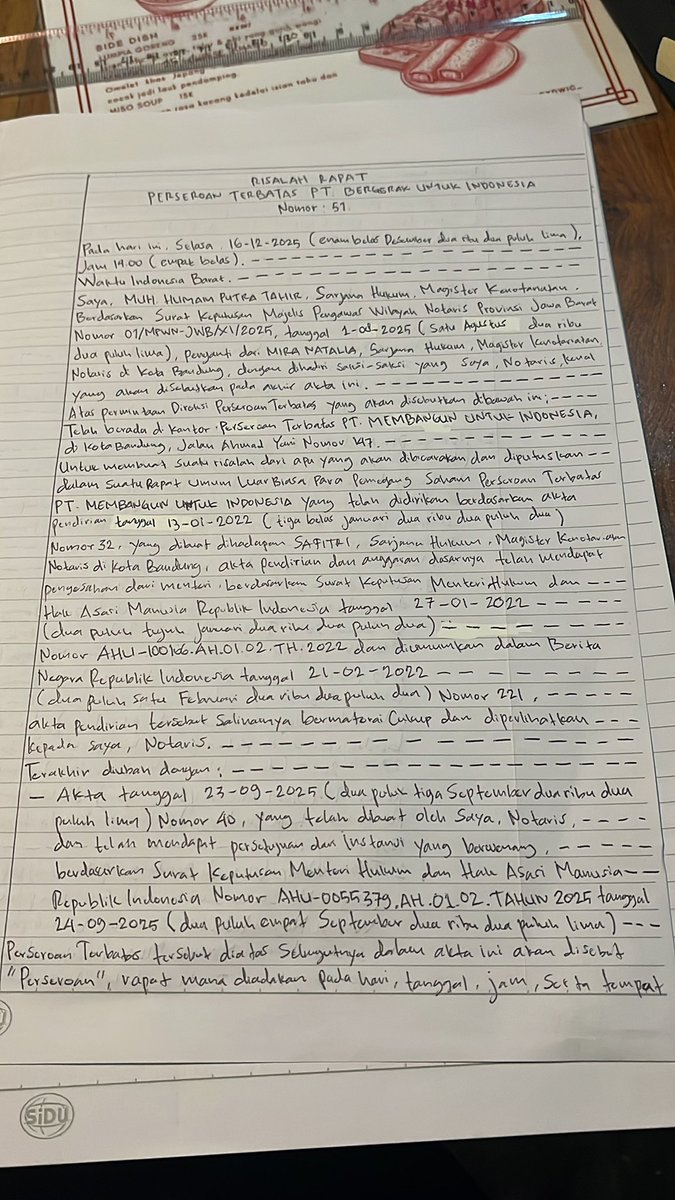 SIDE DISH
LUMPIA GORENG 25K
Omelet khas Jepang
cocok jadi lauk pendamping.
MISO SOUP 15K
rasa kacang kedelai isian tahu dan
RISALAH RAPAT
PERSEROAN TERBATAS PT. BERGERAK UNTUK INDONESIA
Nomor : 51.
Pada hari ini, Selasa, 16-12-2025 (enam belas Desember dua ribu dua puluh lima),
Jam 14.00 (empat belas). - - - - - - - - - - - - - - - - - -
Waktu Indonesia Barat. - - - - - - - - - - - - - - - - - -
Saya, MUH. HUMAM PUTRA TAHIR, Sarjana Hukum, Magister Kenotariatan.
Berdasarkan Surat Keputusan Majelis Pengawas Wilayah Notaris Provinsi Jawa Barat
Nomor 07/MPWN-JWB/XI/2025, tanggal 1-08-2025 (satu Agustus dua ribu
dua puluh lima), Pengganti dari MIRA NATALIA, Sarjana Hukum, Magister Kenotariatan,
Notaris di Kota Bandung, dengan dihadiri saksi-saksi yang saya, Notaris, kenal
yang akan disebutkan pada akhir akta ini. - - - - - - - - - - - -
Atas permintaan Direksi Perseroan Terbatas yang akan disebutkan dibawah ini; - - - -
Telah berada di kantor : Perseroan Terbatas PT. MEMBANGUN UNTUK INDONESIA,
di Kota Bandung, Jalan Ahmad Yani Nomor 147. - - - - - - - - - - -
Untuk membuat suatu risalah dari apa yang akan dibicarakan dan diputuskan - -
dalam suatu Rapat Umum Luar Biasa Para Pemegang Saham Perseroan Terbatas
PT. MEMBANGUN UNTUK INDONESIA yang telah didirikan berdasarkan akta
pendirian tanggal 13-01-2022 (tiga belas januari dua ribu dua puluh dua)
Nomor 32, yang dibuat dihadapan SAFITRI, Sarjana Hukum, Magister Kenotariatan
Notaris di Kota Bandung, akta pendirian dan anggaran dasarnya telah mendapat
pengesahan dari menteri, berdasarkan Surat Keputusan Menteri Hukum dan - - -
Hak Asasi Manusia Republik Indonesia tanggal 27-01-2022 - - - - -
(dua puluh tujuh januari dua ribu dua puluh dua) - - - - - - - -
Nomor AHU-100166.AH.01.02.TH.2022 dan diumumkan dalam Berita
Negara Republik Indonesia tanggal 21-02-2022 - - - - - - - - -
(dua puluh satu Februari dua ribu dua puluh dua) Nomor 221, - - - - - -
akta pendirian tersebut Salinannya bermaterai Cukup dan diperlihatkan - - -
kepada saya, Notaris. - - - - - - - - - - - - - - - - - -
Terakhir diubah dengan; - - - - - - - - - - - - - - - - -
- Akta tanggal 23-09-2025 (dua puluh tiga September dua ribu dua
puluh lima) Nomor 40, yang telah dibuat oleh Saya, Notaris, - - - -
dan telah mendapat persetujuan dari instansi yang berwenang, - - - -
berdasarkan Surat Keputusan Menteri Hukum dan Hak Asasi Manusia - -
Republik Indonesia Nomor AHU-0055379.AH.01.02.TAHUN 2025 tanggal
24-09-2025 (dua puluh empat September dua ribu dua puluh lima) - - -
Perseroan Terbatas tersebut diatas Selanjutnya dalam akta ini akan disebut
"Perseroan", rapat mana diadakan pada hari, tanggal, jam, serta tempat
SiDU